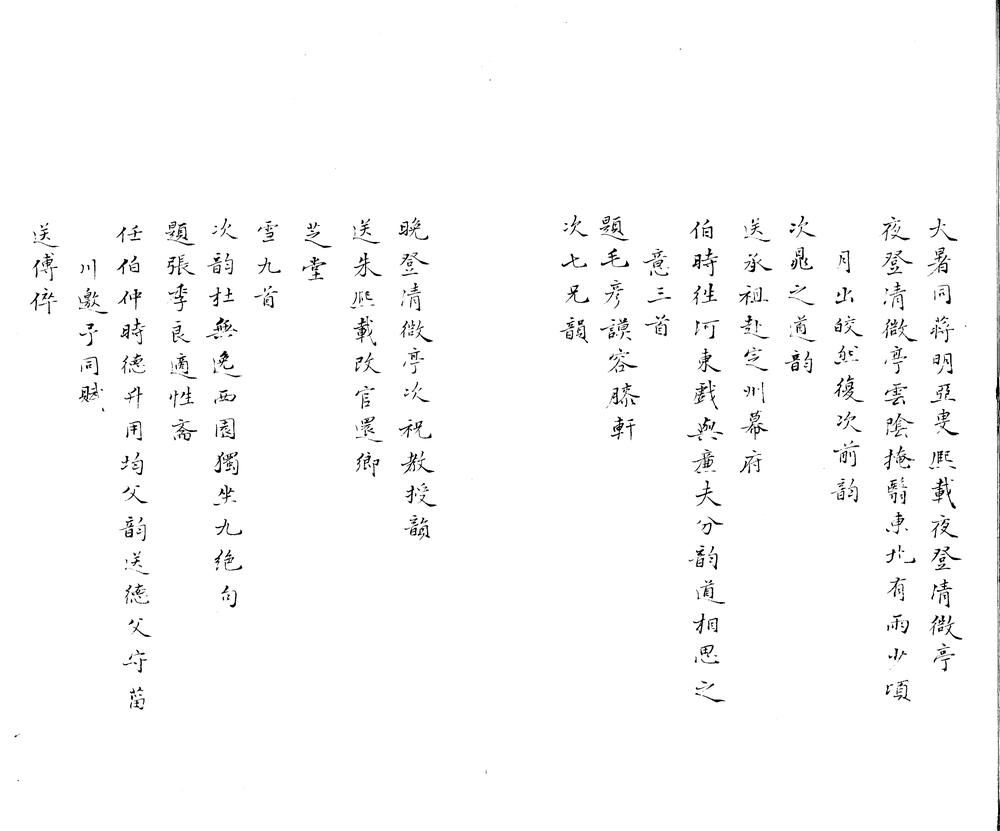 大暑同蔣明亞叟熙載夜登清微亭
夜登清微亭雲陰掩翳東北有雨少頃
月出皎然復次前韵
次晁之道韵
送承祖赴定州幕府
伯時徃河東戲與廉夫分韵道相思之
意三首
題毛彥謨容膝軒
次七兄韻
晚登清微亭次祝教授韻
送朱熙載改官還鄉
芝堂
雪九首
次韵杜無逸西園獨坐九絕句
題張季良適性齋
任伯仲時德升用均父韵送德父守菑
川邀予同賦
送傅倅